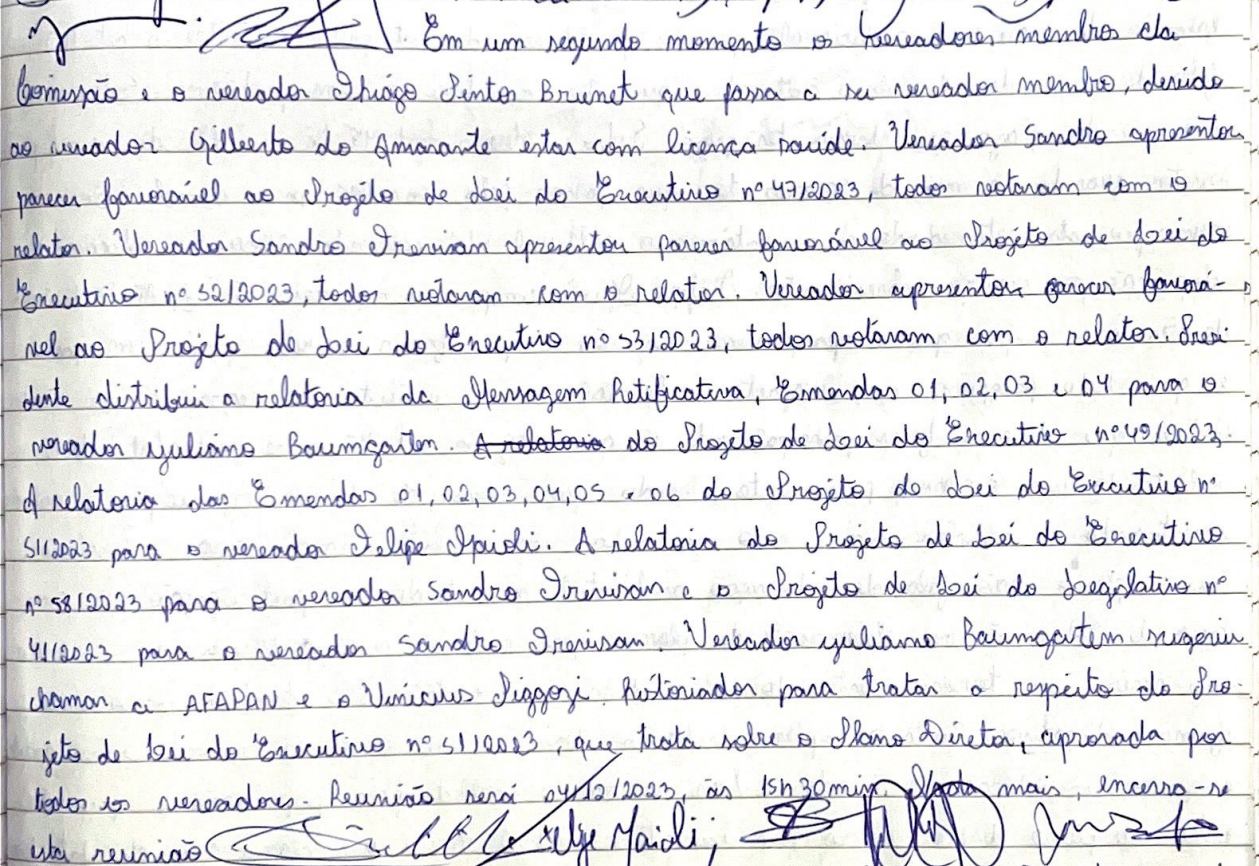 Em um segundo momento os vereadores membros da
Comissão e o vereador Thiago Pintos Brunet que passa a ser vereador membro, devido
ao vereador Gilberto do Amarante estar com licença saúde. Vereador Sandro apresentou
parecer favorável ao Projeto de Lei do Executivo nº 47/2023, todos votaram com o
relator. Vereador Sandro Trevisan apresentou parecer favorável ao Projeto de Lei do
Executivo nº 52/2023, todos votaram com o relator. Vereador apresentou parecer favorá-
vel ao Projeto de Lei do Executivo nº 53/2023, todos votaram com o relator. Presi
dente distribuiu a relatoria da Mensagem Retificativa, Emendas 01, 02, 03 e 04 para o
vereador Juliano Baumgarten. A relatoria do Projeto de Lei do Executivo nº 49/2023.
A relatoria das Emendas 01, 02, 03, 04, 05 e 06 do Projeto de Lei do Executivo nº
51/2023 para o vereador Felipe Maioli. A relatoria do Projeto de Lei do Executivo
nº 58/2023 para o vereador Sandro Trevisan e o Projeto de Lei do Legislativo nº
41/2023 para o vereador Sandro Trevisan. Vereador Juliano Baumgartem sugeriu
chamar a AFAPAN e o Vinicius Piggozi. Historiador para tratar a respeito do Pro-
jeto de Lei do Executivo nº 51/2023, que trata sobre o Plano Diretor, aprovada por
todos os vereadores. Reunião será 04/12/2023, às 15h30min. Nada mais, encerro-se
esta reunião Felipe Maioli;